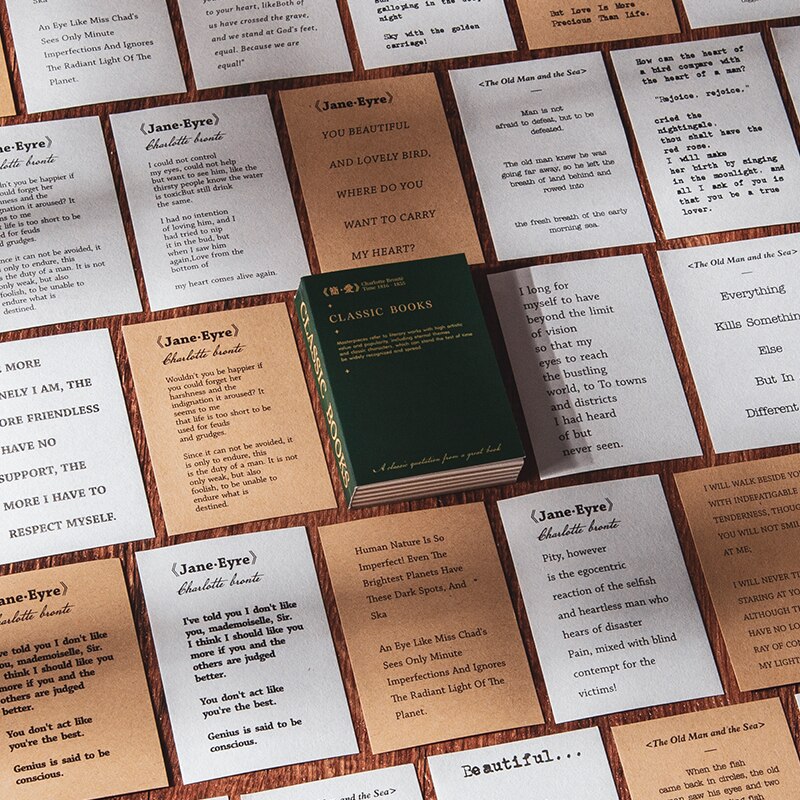 Ska
An Eye Like Miss Chad's
Sees Only Minute
Imperfections And Ignores
The Radiant Light Of The
Planet.
to your heart, likeBoth of
us have crossed the grave,
and we stand at God's feet,
equal. Because we are
equal!"
galloping in the
night
Sky with the golden
carriage!
But Love Is More
Precious Than Life.
ane·Eyre》
arlotte bronte
dn't you be happier if
uld forget her
hness and the
gnation it aroused? It
s to me
life is too short to be
for feuds
grudges.
e it can not be avoided, it
ly to endure, this
e duty of a man. It is not
weak, but also
sh, to be unable to
re what is
ned.
《Jane·Eyre》
Charlotte bronte
I could not control
my eyes, could not help
but want to see him, like the
thirsty people know the water
is toxicBut still drink
the same.
I had no intention
of loving him, and I
had tried to nip
it in the bud, but
when I saw him
again,Love from the
bottom of
my heart comes alive again.
《Jane·Eyre》
YOU BEAUTIFUL
AND LOVELY BIRD,
WHERE DO YOU
WANT TO CARRY
MY HEART?
<The Old Man and the Sea>
Man is not
afraid to defeat, but to be
defeated.
The old man knew he was
going far away, so he left the
breath of land behind and
rowed into
the fresh breath of the early
morning sea.
How can the heart of
a bird compare with
the heart of a man?
"Rejoice, rejoice,"
cried the
nightingale.
thou shalt have the
red rose.
I will make
her birth by singing
in the moonlight, and
all I ask of you is
that you be a true
lover.
MORE
NELY I AM, THE
ORE FRIENDLESS
HAVE NO
SUPPORT, THE
MORE I HAVE TO
RESPECT MYSELF.
《Jane·Eyre》
Charlotte bronte
Wouldn't you be happier if
you could forget her
harshness and the
indignation it aroused? It
seems to me
that life is too short to be
used for feuds
and grudges.
Since it can not be avoided, it
is only to endure, this
is the duty of a man. It is not
only weak, but also
foolish, to be unable to
endure what is
destined.
CLASSIC BOOKS
《简·爱》 Charlotte Bronte
Time 1816 - 1855
CLASSIC BOOKS
Masterpieces refer to literary works with high artistic
value and popularity, including eternal themes
and classic characters, which can stand the test of time
be widely recognized and spread.
A classic quotation from a great book
I long for
myself to have
beyond the limit
of vision
so that my
eyes to reach
the bustling
world, to To towns
and districts
I had heard
of but
never seen.
<The Old Man and the
Everything
Kills Somethin
Else
But In
Different
ane·Eyre》
arlotte bronte
ve told you I don't like
u, mademoiselle, Sir.
think I should like you
ore if you and the
hers are judged
better.
You don't act like
you're the best.
Genius is said to be
conscious.
《Jane·Eyre》
Charlotte bronte
I've told you I don't like
you, mademoiselle, Sir.
I think I should like you
more if you and the
others are judged
better.
You don't act like
you're the best.
Genius is said to be
conscious.
Human Nature Is So
Imperfect! Even The
Brightest Planets Have
These Dark Spots, And "
Ska
An Eye Like Miss Chad's
Sees Only Minute
Imperfections And Ignores
The Radiant Light Of The
Planet.
《Jane·Eyre》
Charlotte bronte
Pity, however
is the egocentric
reaction of the selfish
and heartless man who
hears of disaster
Pain, mixed with blind
contempt for the
victims!
I WILL WALK BESIDE YO
WITH INDEFATIGABLE
TENDERNESS, THOU
YOU WILL NOT SMIL
AT ME;
I WILL NEVER T
STARING AT YO
ALTHOUGH T
HAVE NO LO
RAY OF CO
MY LIGHT
Man and the Sea>
Beautiful...
<The Old Man and the Sea>
When the fish
came back in circles, the old
man saw his eyes and two